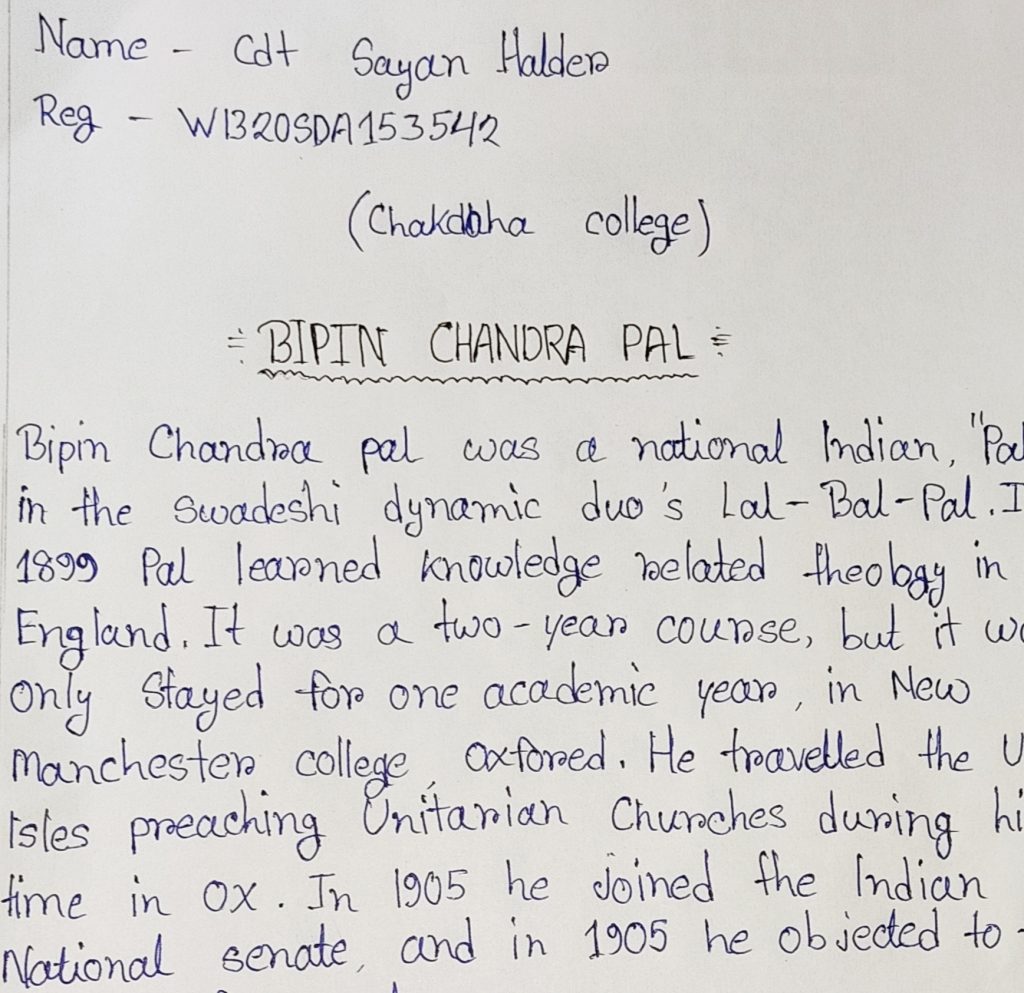 Name - Cdt Sayan Halder
Reg - WB20SDA153542
(Chakdaha college)
BIPIN CHANDRA PAL
Bipin Chandra pal was a national Indian, "Pal
in the swadeshi dynamic duo's Lal-Bal-Pal. I
1899 Pal learned knowledge related theology in
England. It was a two-year course, but it wa
only stayed for one academic year, in New
Manchester college, oxfored. He travelled the U
Isles preaching Unitarian Churches during hi
time in OX. In 1905 he Joined the Indian
National senate, and in 1905 he objected to